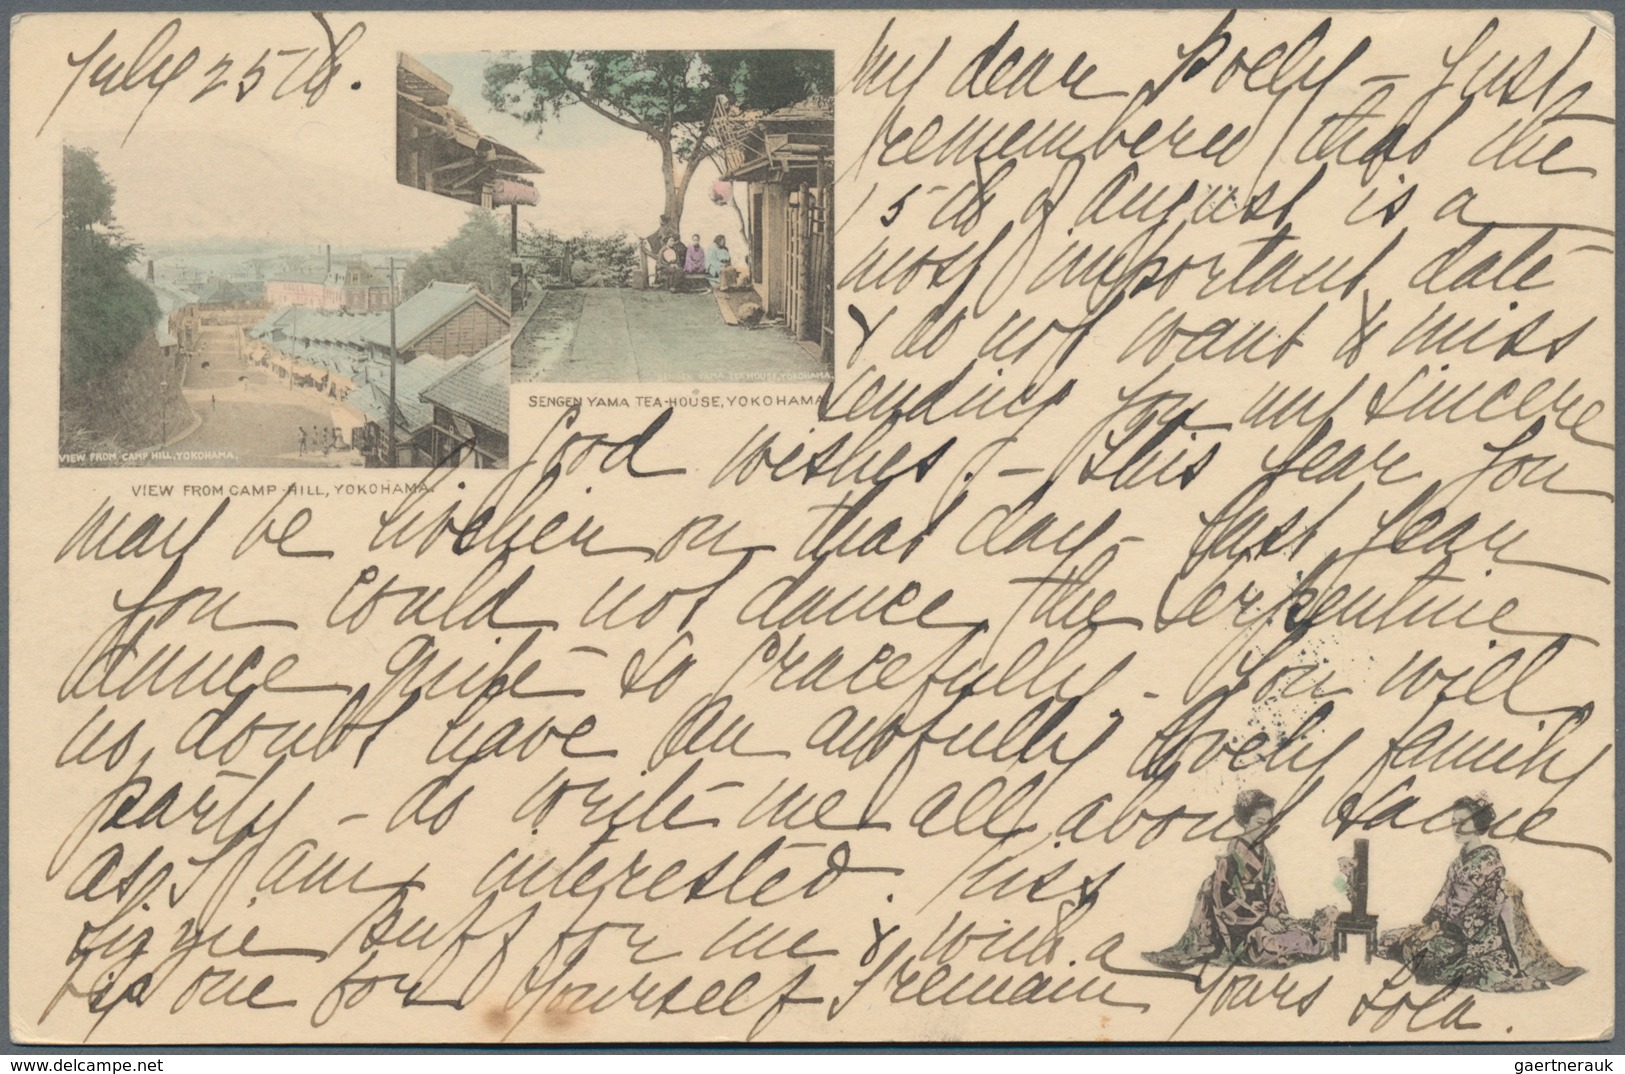 July 25th.
My dear Poely - Just
remembered that the
15th of August is a
most important date
& do not want to miss
sending you my sincere
good wishes. - This year you
may be livelier on that day - last year
you could not dance the serpentine
dance quite so gracefully - You will
no doubt have an awfully lovely family
party - do write me all about same
as I am interested. Kiss
Lizzie Suff for me & with a
big one for yourself I remain Yours Lola.
SENGEN YAMA TEA-HOUSE, YOKOHAMA
TEA HOUSE, YOKOHAMA.
VIEW FROM CAMP HILL, YOKOHAMA.
VIEW FROM CAMP-HILL, YOKOHAMA.
gaertnerauk // delcampe.net